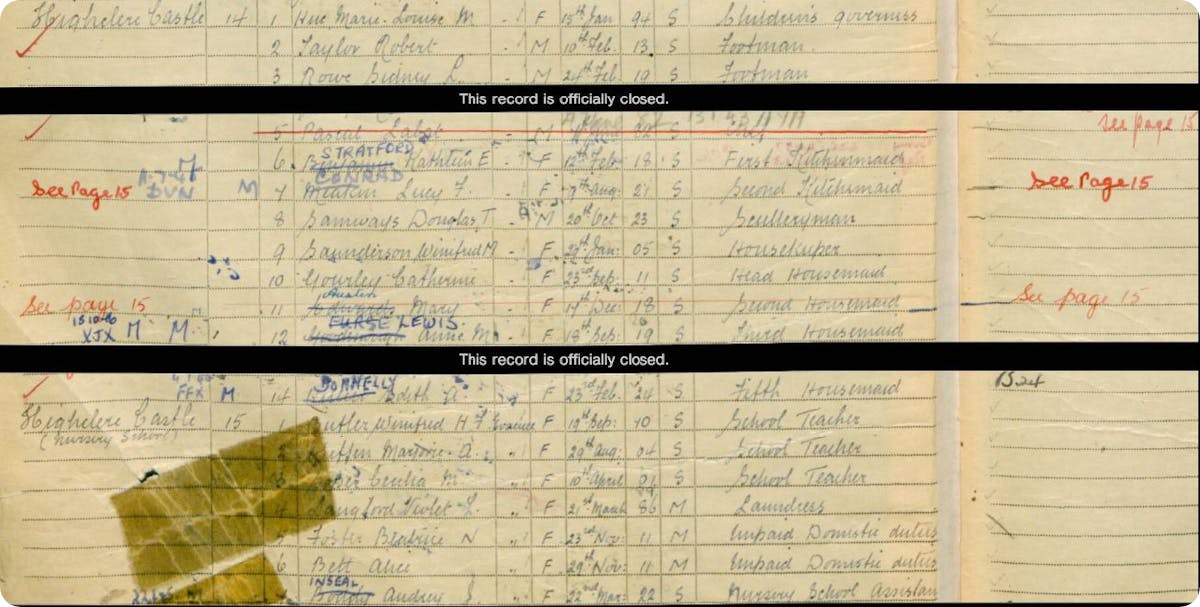 Highclere Castle 14 1 Huc Marie-Louise M - F 15th Jan 94 S Children's governess
2 Taylor Robert - M 10th Feb. 13 S Footman
3 Rowe Sidney L. - M 24th Feb. 19 S Footman
This record is officially closed.
5 - M 02 S
see page 15
STRATFORD
6 Kathleen E - F 12th Feb 18 S First Kitchenmaid
CONRAD
See Page 15 DVN M 7 Lucy F. F 7th Aug: 21 S Second Kitchenmaid See Page 15
8 Samways Douglas T - M 20th Oct 23 S Sculleryman
9 Saunderson Winifred M - F Jan: 05 S Housekeeper
10 Gourley Catherine - F 23rd Sep: 11 S Head Housemaid
See page 15 11 Mary F 14th Dec: 18 S Second Housemaid See page 15
15.10.46 FURSE LEWIS
XJX M M 12 Annie M. - F 18th Sep: 19 S Third Housemaid
This record is officially closed.
DONNELLY
FFX M 14 Edith A. F 23rd Feb. 24 S Fifth Housemaid
Highclere Castle 15 1 Butler Winifred H. F F 19th Sep: 10 S School Teacher
(Nursery School)
Marjorie A. " F 29th Aug: 04 S School Teacher
Cecilia M. " F 10th April S School Teacher
4 Langford Violet L. " F 21st March 86 M Laundress
5 Foster Beatrice N " F 23rd Nov: 11 M Unpaid Domestic duties
6 Bett Alice " F 29th Nov: 11 M Unpaid Domestic duties
INSEAL
Audrey J. " F 22nd Mar: 22 S Nursery School Assistan